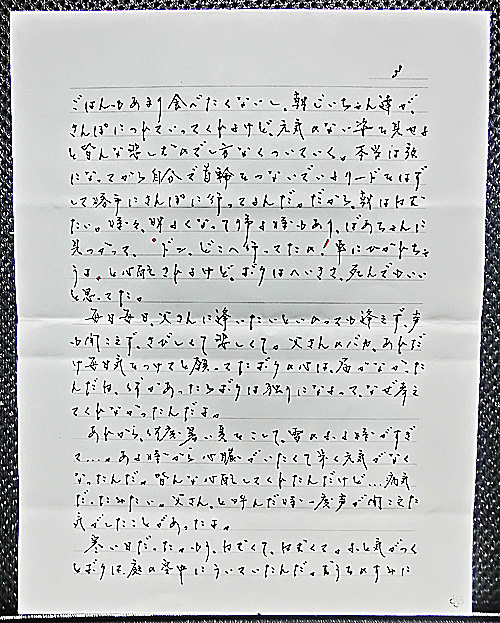 ごはんもあまり食べたくないし、朝じいちゃん達が、
さんぽにつれていってくれるけど、元気のない姿を見せる
と皆んな悲しむので仕方なくついていく。本当は夜
になってから自分で首輪をつないでいるリードをはず
して勝手にさんぽに行ってるんだ。だから、朝はねむ
たい。時々、明るくなって帰る時もあり、ばあちゃんに
見つかって、"ドン、どこへ行ってたの!車にひかれちゃ
うよ。"と心配されるけど、ボクはへいきさ、死んでもいい
と思ってた。
毎日毎日、父さんに逢いたいといのっても逢えず、声
も聞こえず、さびしくて悲しくて。父さんのバカ、あれだ
け毎日気をつけてと願ってたボクの心は、届かなかった
んだね、何かあったらボクは独りになるって、なぜ考え
てくれなかったんだよ。
あれから、何度暑い夏をこして、雪のふる時がすぎ
て…。ある時から心臓がいたくて早く元気がなく
なったんだ。皆んな心配してくれたんだけど…病気
だったみたい。父さん、と呼んだ時一度声が聞こえた
気がしたことがあったよ。
寒い日だったかな、ねむくて、ねむくて。ふと気がつく
とボクは、庭の空中にういていたんだ。おうちのすみに